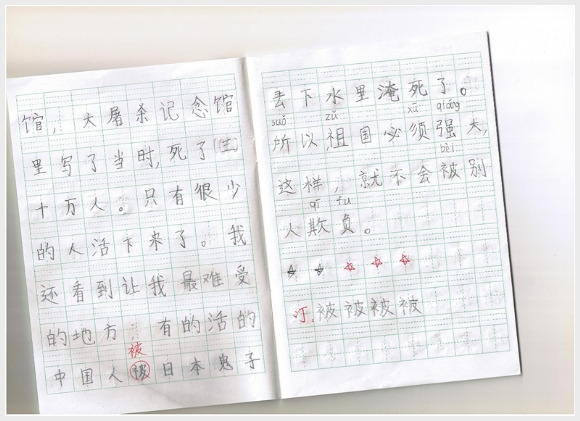 馆，大屠杀记念馆
里写了当时,死了三
十万人。只有很少
的人活下来了。我
还看到让我最难受
的地方 有的活的
被
中国人 日本鬼子
丢下水里淹死了。
suǒ zǔ xū qiáng
所以祖国必须强大,
bèi
这样，就不会被别
qī fu
人欺负。
订.被被被被